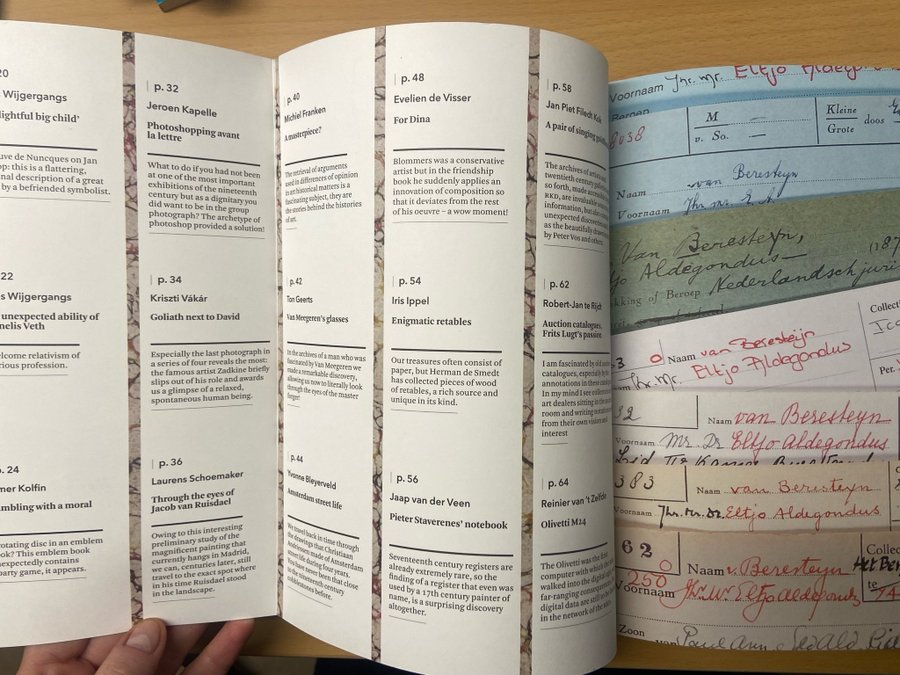 20
Wijgergangs
lightful big child’
uve de Nuncques on Jan
op: this is a flattering,
nal description of a great
by a befriended symbolist.
22
s Wijgergangs
unexpected ability of
nelis Veth
elcome relativism of
rious profession.
p. 24
mer Kolfin
mbling with a moral
rotating disc in an emblem
ook? This emblem book
nexpectedly contains
party game, it appears.
p. 32
Jeroen Kapelle
Photoshopping avant
la lettre
What to do if you had not been
at one of the most important
exhibitions of the nineteenth
century but as a dignitary you
did want to be in the group
photograph? The archetype of
photoshop provided a solution!
p. 34
Kriszti Vákár
Goliath next to David
Especially the last photograph in
a series of four reveals the most:
the famous artist Zadkine briefly
slips out of his role and awards
us a glimpse of a relaxed,
spontaneous human being.
p. 36
Laurens Schoemaker
Through the eyes of
Jacob van Ruisdael
Owing to this interesting
preliminary study of the
magnificent painting that
currently hangs in Madrid,
we can, centuries later, still
travel to the exact spot where
in his time Ruisdael stood
in the landscape.
p. 40
Michiel Franken
A masterpiece?
The retrieval of arguments
used in differences of opinion
in art historical matters is a
fascinating subject, they are
the stories behind the histories
of art.
p. 42
Ton Geerts
Van Meegeren’s glasses
In the archives of a man who was
fascinated by Van Meegeren we
made a remarkable discovery,
allowing us now to literally look
through the eyes of the master
forger!
p. 44
Yvonne Bleyerveld
Amsterdam street life
We travel back in time through
the drawings that Christiaan
Andriessen made of Amsterdam
street life during four years.
You have never been that close
to the nineteenth century
celebrities before.
p. 48
Evelien de Visser
For Dina
Blommers was a conservative
artist but in the friendship
book he suddenly applies an
innovation of composition so
that it deviates from the rest
of his oeuvre – a wow moment!
p. 54
Iris Ippel
Enigmatic retables
Our treasures often consist of
paper, but Herman de Smedt
has collected pieces of wood
of retables, a rich source and
unique in its kind.
p. 56
Jaap van der Veen
Pieter Staverenes’ notebook
Seventeenth century registers are
already extremely rare, so the
finding of a register that even was
used by a 17th century painter of
name, is a surprising discovery
altogether.
p. 58
Jan Piet Filedt Kok
A pair of singing
The archives of artists
twentieth century
so forth, made
RKD, are invaluable
information, but also
unexpected discoveries
as the beautifully drawn
by Peter Vos and others.
p. 62
Robert-Jan te Rijdt
Auction catalogues,
Frits Lugt’s passion.
I am fascinated by old
catalogues, especially
annotations in these
In my mind I see
art dealers sitting in the
room and writing
from their own
interest
p. 64
Reinier van ’t Zelfde
Olivetti M24
The Olivetti was the first
computer with which
walked into the digital
far-ranging consequences
digital data are still
in the network of the
Voornaam Jhr. Mr. Eltjo Aldego
Beroep
8038
M
v. So.
Kleine
Grote
doos
Naam van Beresteyn
Voornaam Jhr. mr. E. A.
Van Beresteyn,
jo Aldegondus
(187
kking of Beroep Nederlandsch juri
Collecti
Ico
Per.
3 0 Naam van Beresteijn
Jhr. Mr. Eltjo Aldegondus
32
Naam van Beresteyn
Voornaam Mr. Dr. Eltjo Aldegondus
Lid
383
Naam van Beresteyn
Jhr. Mr. Dr. Eltjo Aldegondus
62
0
250
Naam v. Beresteyn
Voornaam Jhr. Mr. Eltjo Aldegondus
Collec
Het Ber
te
74
Zoon
van Paul